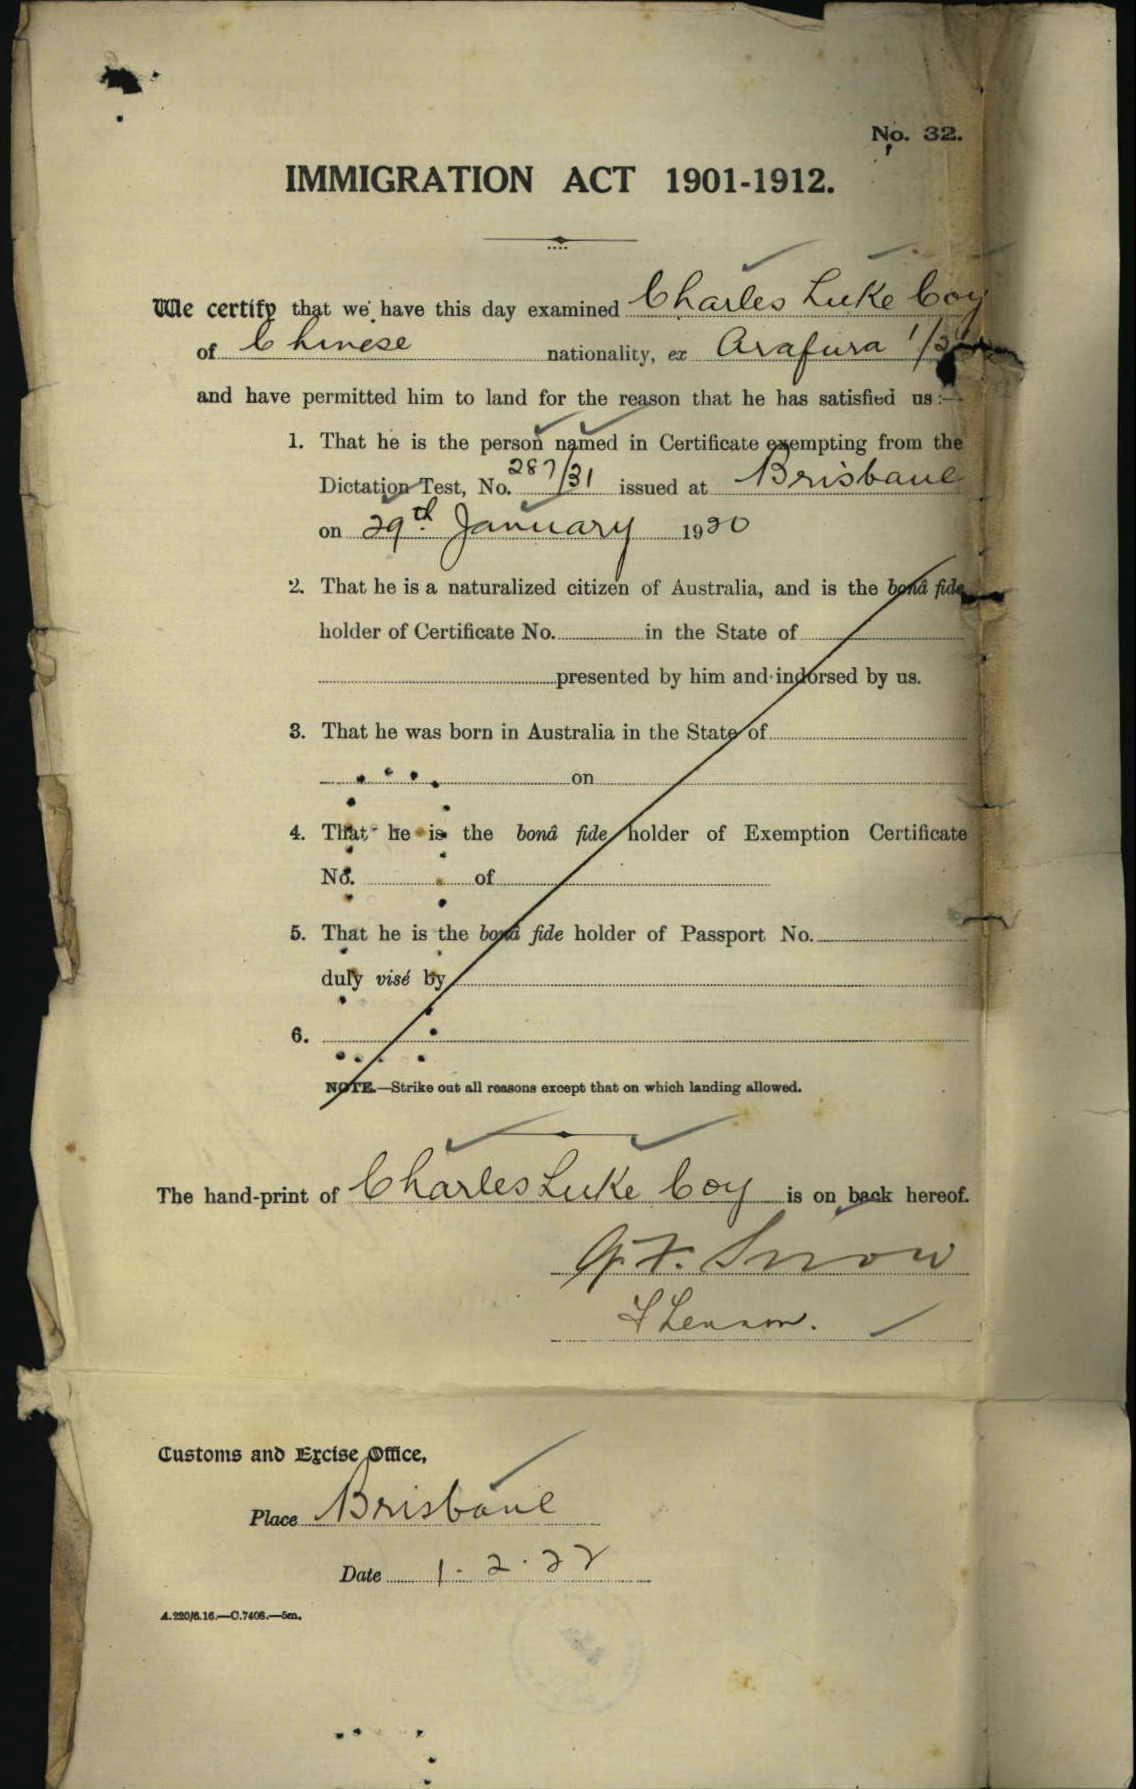 No. 32.
IMMIGRATION ACT 1901-1912.
We certify that we have this day examined Charles Luke Coy
of Chinese nationality, ex Arafura
and have permitted him to land for the reason that he has satisfied us :—
1. That he is the person named in Certificate exempting from the
Dictation Test, No. 287/31 issued at Brisbane
on 29th January 1920
2. That he is a naturalized citizen of Australia, and is the bonâ fide
holder of Certificate No. in the State of
presented by him and indorsed by us.
3. That he was born in Australia in the State of
on
4. That he is the bonâ fide holder of Exemption Certificate
No. of
5. That he is the bonâ fide holder of Passport No.
duly visé by
6.
NOTE.—Strike out all reasons except that on which landing allowed.
The hand-print of Charles Luke Coy is on back hereof.
Snow
Lennon.
Customs and Excise Office,
Place Brisbane
Date 1.2.22
A.220/6.16.—C.7408.—5m.